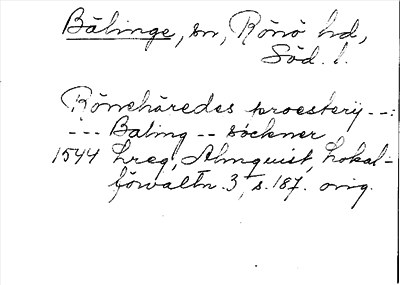 Bälinge, sn, Rönö hd,
Söd. l.
Rönehäredes proestery --:
--- Baling -- sockner
1544 Lreg, Almquist, Lokal-
förvaltn. 3, s. 187. orig.